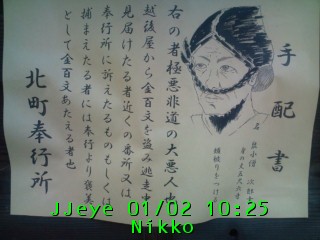 手配書
右の者極悪非道の大悪人也
越後屋から金百文を盗み逃走中
見届けたる者近くの番所又は
奉行所に訴えたるものもしくは
捕まえたる者には奉行より褒美
として金百文あたえる者也
北町奉行所
JJeye 01/02 10:25
Nikko